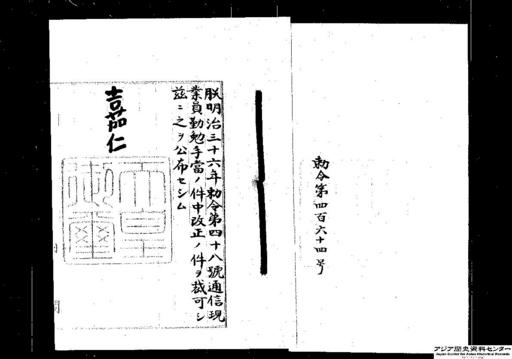 勅令第四百六十四号
朕明治三十六年勅令第四十八號通信現
業員勤勉手當ノ件中改正ノ件ヲ裁可シ
茲ニ之ヲ公布セシム
嘉仁
天皇御璽
アジア歴史資料センター
Japan Center for Asian Historical Records